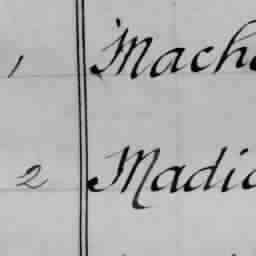 1 Mach
2 Madi